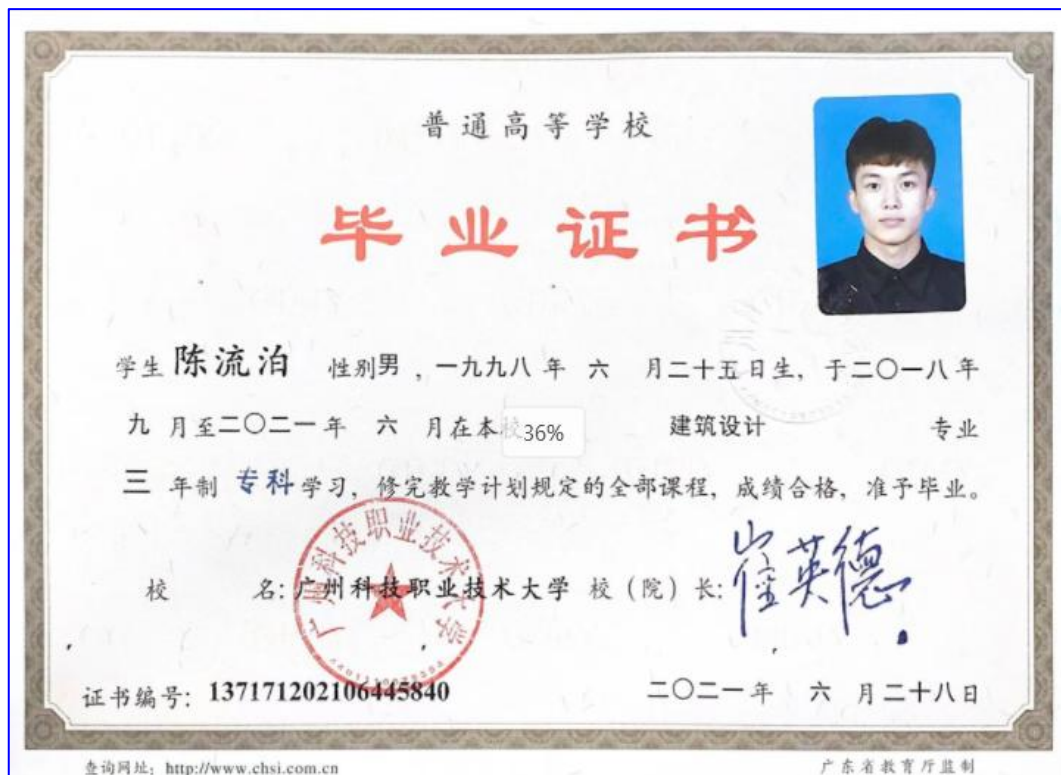 普通高等学校
毕业证书
学生 陈流泊 性别男，一九九八年 六 月二十五日生，于二〇一八年
九 月至二〇二一年 六 月在本校 36% 建筑设计 专业
三 年制 专科学习，修完教学计划规定的全部课程，成绩合格，准予毕业。
广州科技职业技术大学
校 名：广州科技职业技术大学 校（院）长：崔英德
证书编号：137171202106445840 二〇二一年 六 月二十八日
查询网址：http://www.chsi.com.cn 广东省教育厅监制